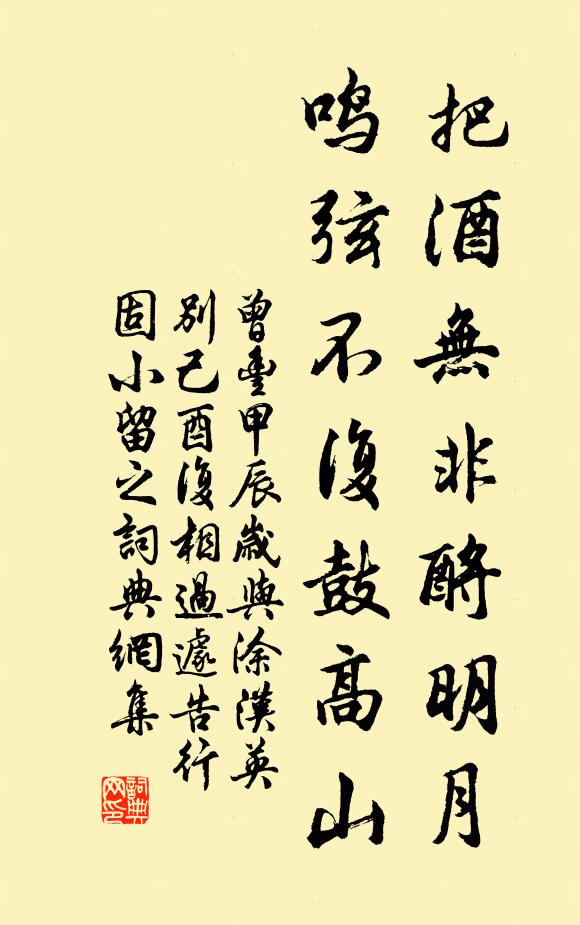 把酒無非酹明月
鳴弦不復鼓高山
曾豐甲辰歲與涂漢英
別己酉復相過遽告行
固小留之詞典網集
詞典
网印